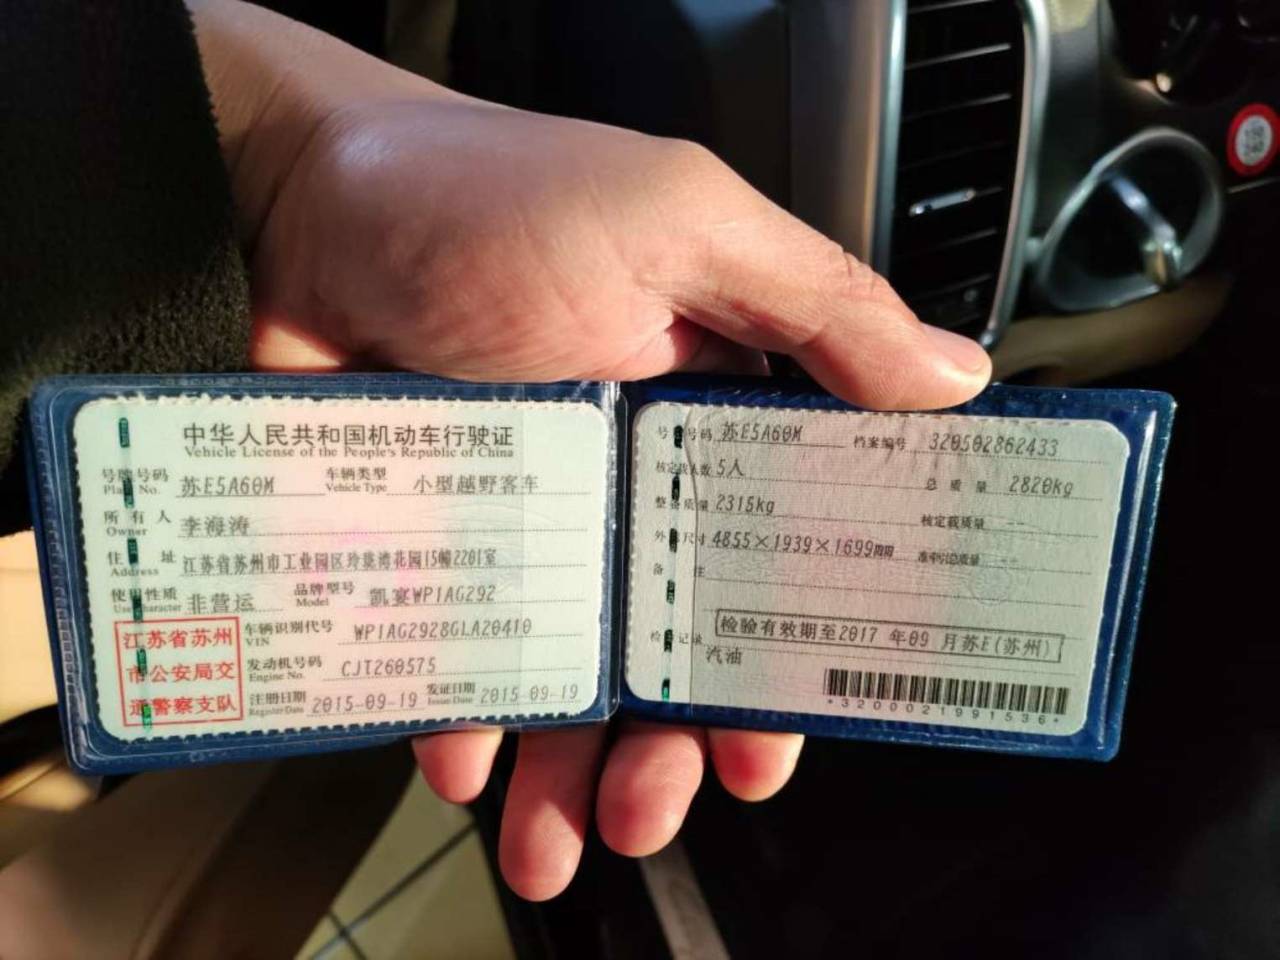 中华人民共和国机动车行驶证
Vehicle License of the People's Republic of China
号牌号码 苏E5A60M 车辆类型 小型越野客车
Plate No. Vehicle Type
所有人 李海涛
Owner
住址 江苏省苏州市工业园区玲珑湾花园15幢2201室
Address
使用性质 非营运 品牌型号 凯宴WP1AG292
Use Character Model
江苏省苏州
市公安局交
通警察支队
车辆识别代号 WP1AG2928GLA20410
VIN
发动机号码 CJT260575
Engine No.
注册日期 2015-09-19 发证日期 2015-09-19
Register Date Issue Date
号牌号码 苏E5A60M 档案编号 320502862433
核定载人数 5人 总质量 2820kg
整备质量 2315kg 核定载质量 --
外廓尺寸 4855×1939×1699mm 准牵引总质量 --
备注
检验有效期至2017年09月苏E(苏州)
检验记录
汽油
*3200021991536*